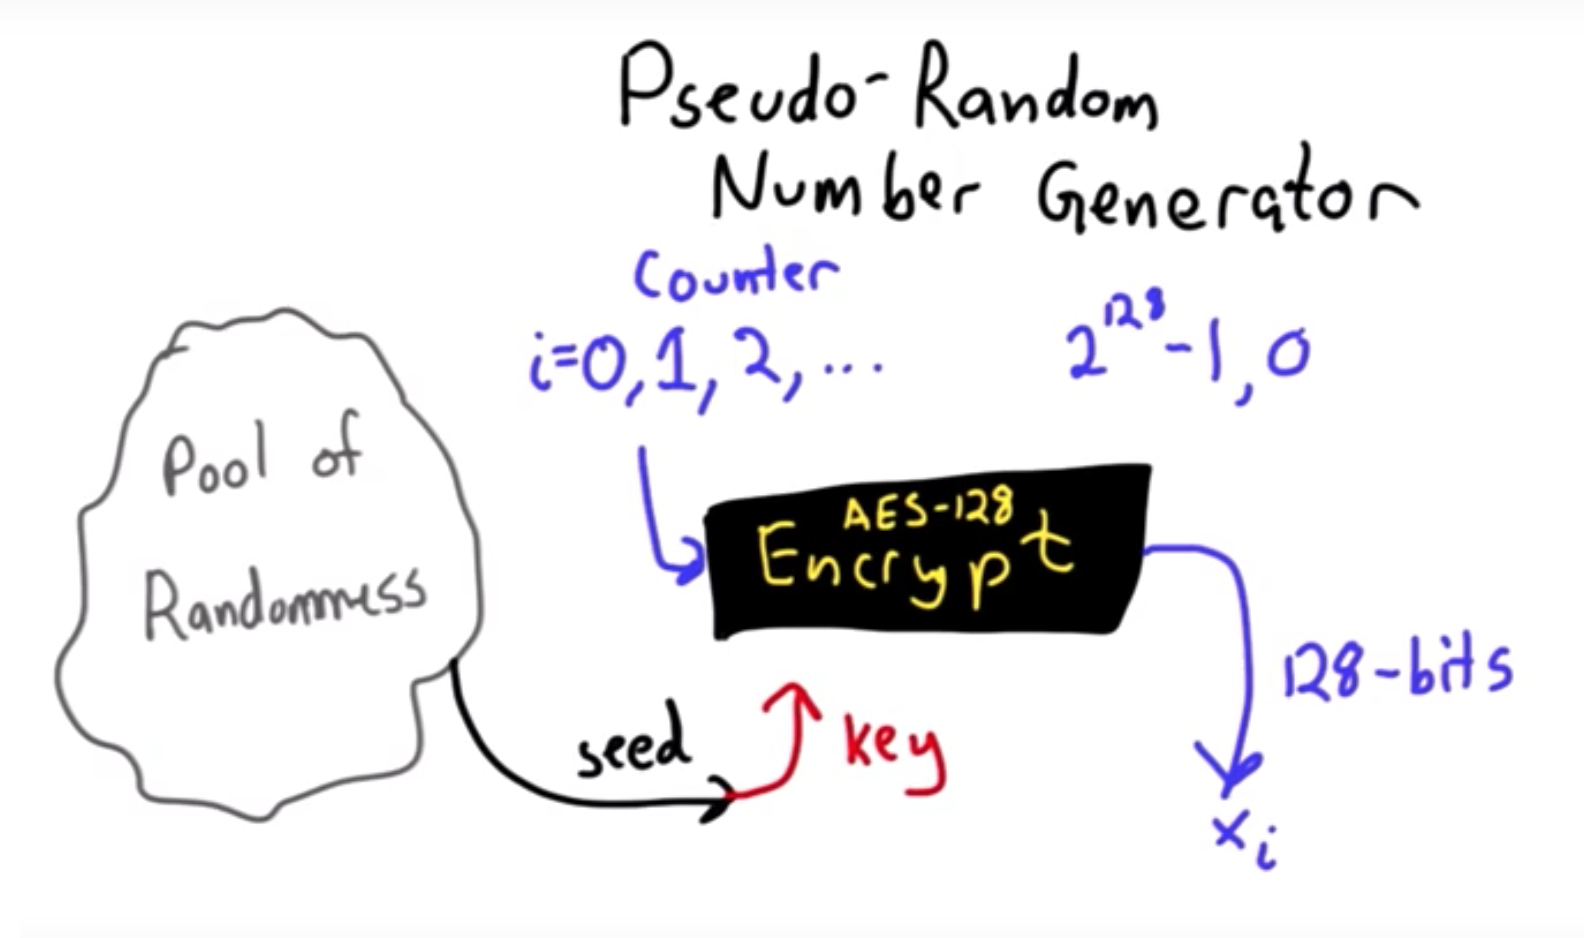 Pseudo-Random
Number Generator
Counter
i=0,1,2,... 2^128-1,0
Pool of
Randomness
AES-128
Encrypt
128-bits
seed
key
x_i